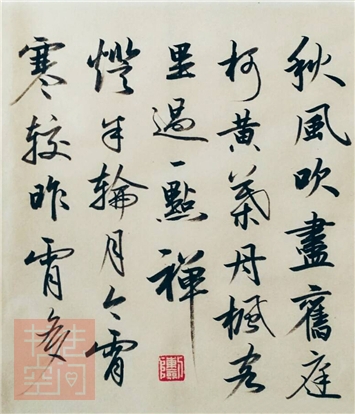 秋風吹盡舊庭
柯黃葉丹楓客
里過一點禪
燈半輪月今宵
寒較昨宵多